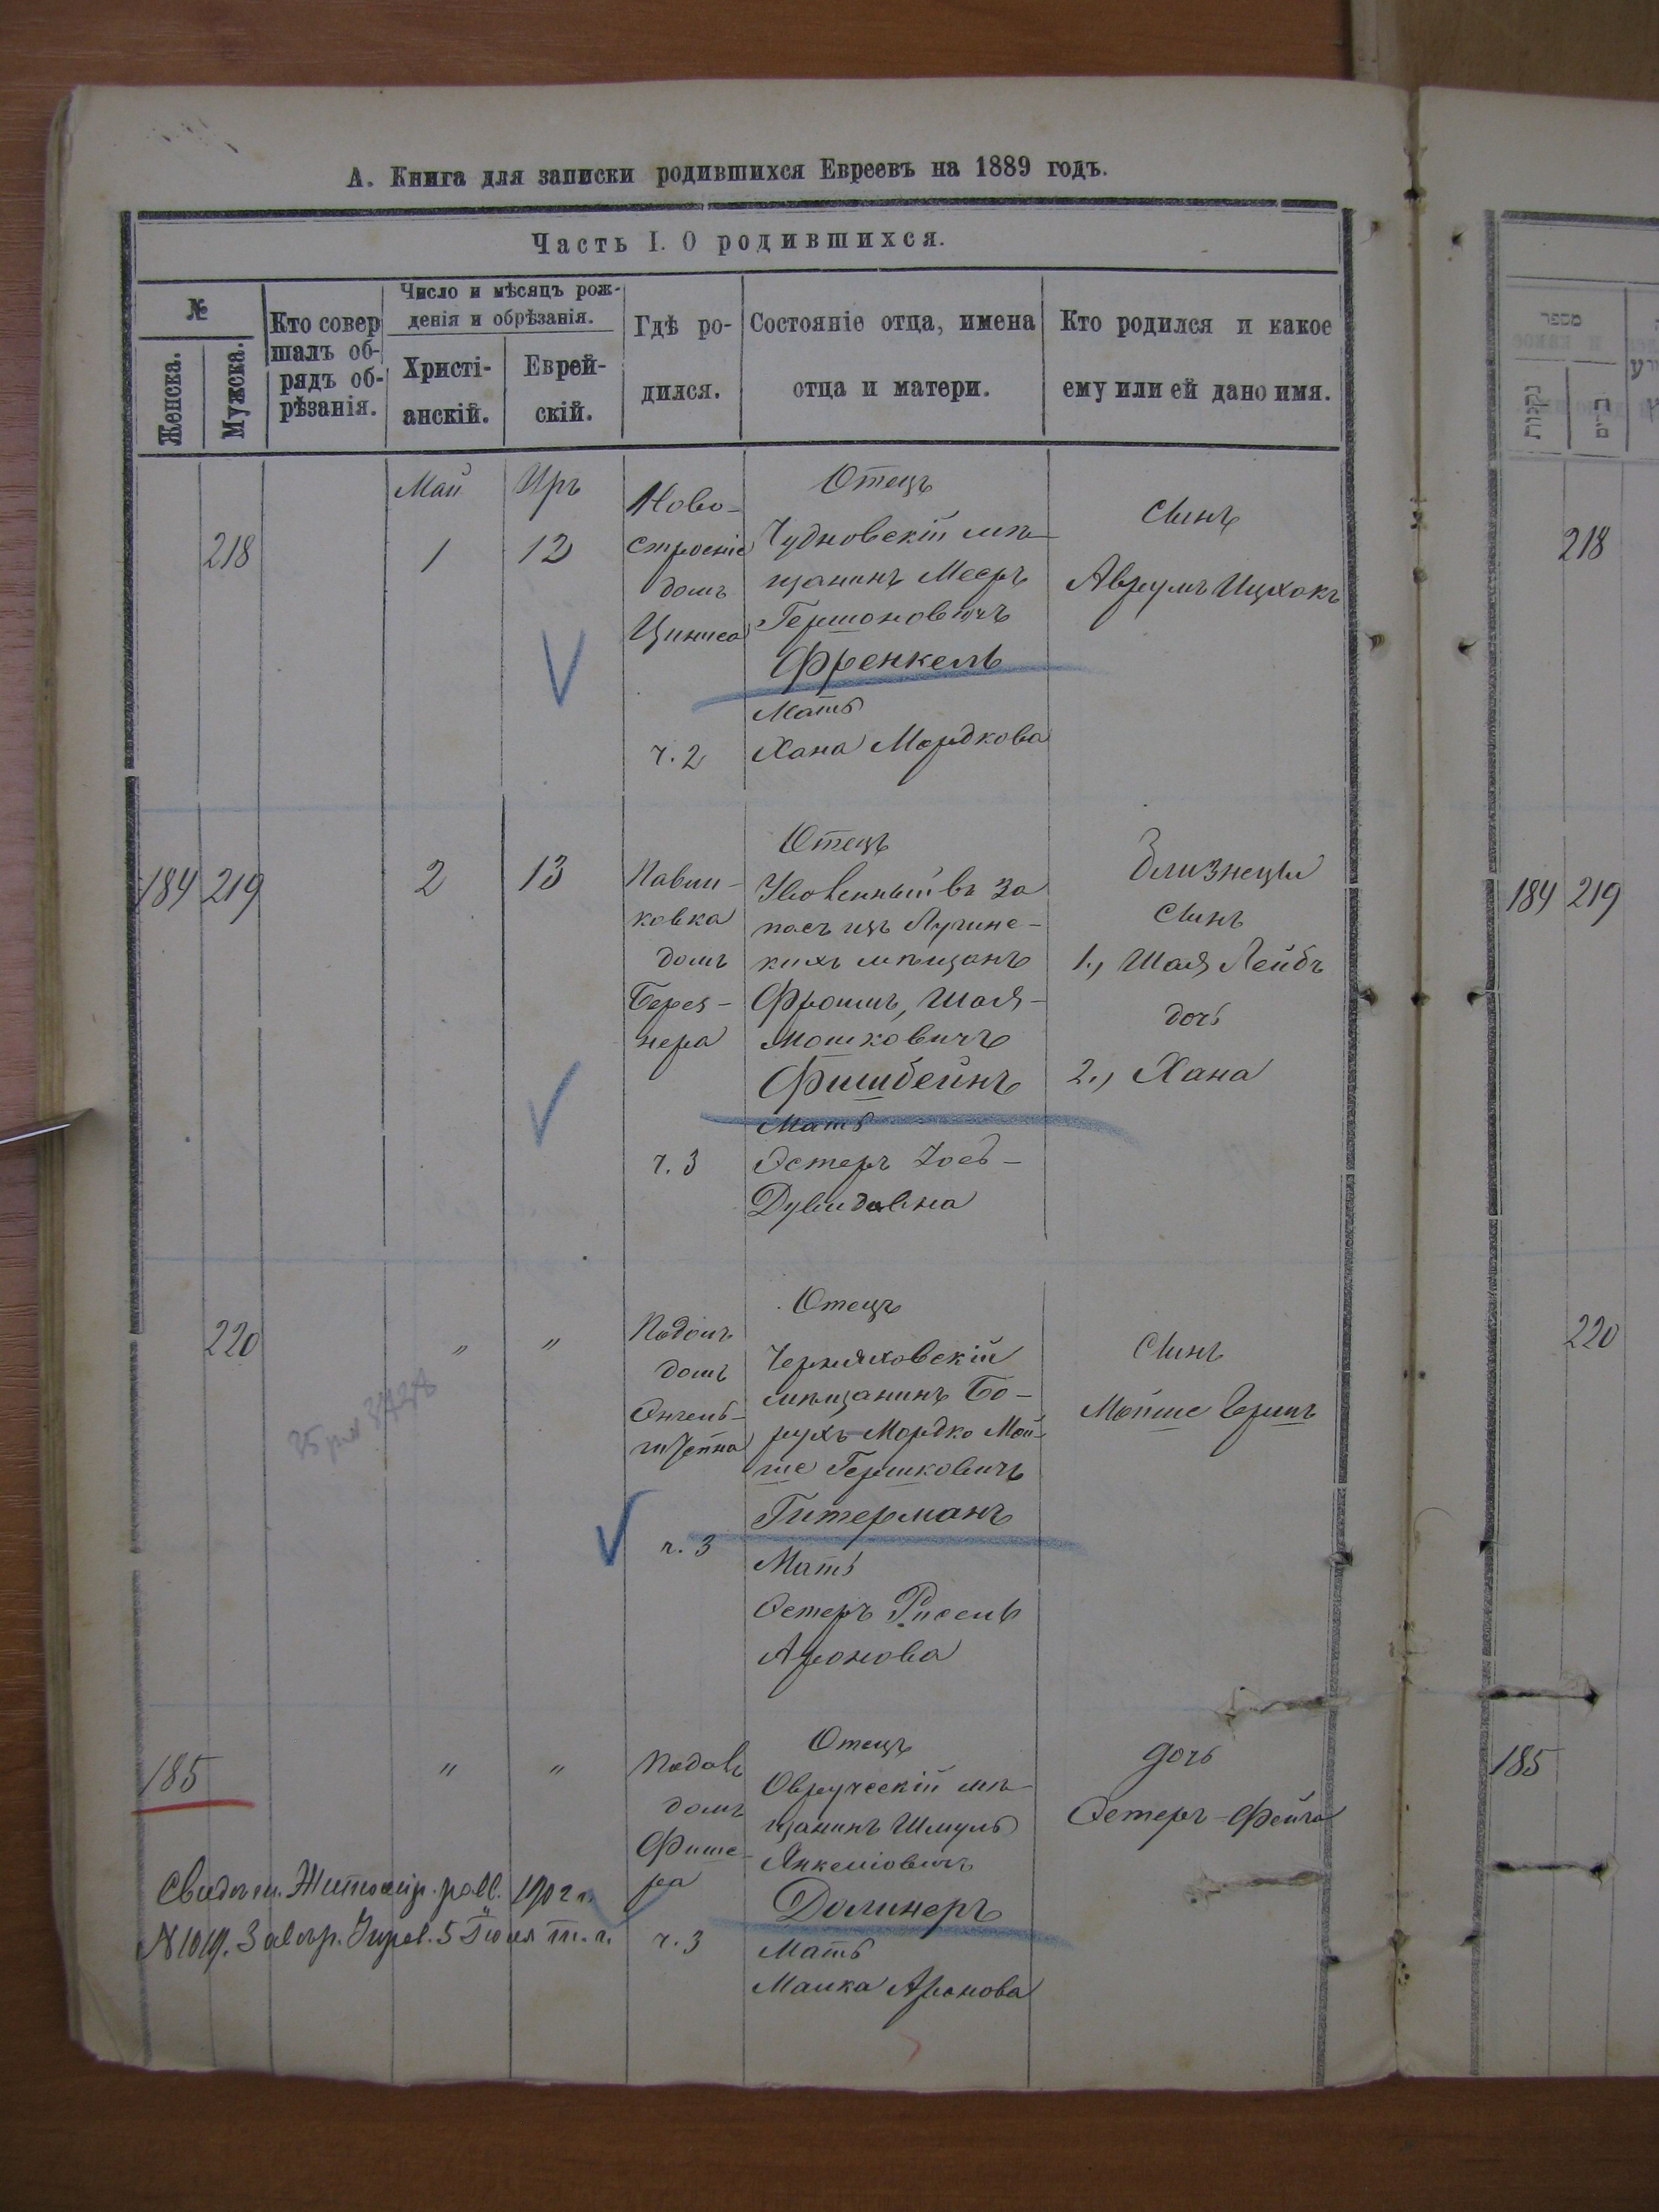 А. Книга для записки родившихся Евреевъ на 1889 годъ.
Часть I. О родившихся.
№
Женска.
Мужска.
Кто совер
шалъ об-
рядъ об-
рѣзанія.
Число и мѣсяцъ рож-
денія и обрѣзанія.
Христі-
анскій.
Еврей-
скій.
Гдѣ ро-
дился.
Состояніе отца, имена
отца и матери.
Кто родился и какое
ему или ей дано имя.
218
Май
1
Иръ
12
Ново-
строеніе
домъ
ч. 2
Отецъ
Чудновскій мѣ-
щанинъ Мееръ
Гершоновичъ
Френкель
Мать
Хана Мордкова
Сынъ
Аврумъ Ицхокъ
184 219
2
13
Павли-
ковка
домъ
ч. 3
Отецъ
Уволенный въ за
пасъ изъ Лугинс-
кихъ мѣщанъ
Фроимъ, Шая-
Мошковичъ
Фишбейнъ
Мать
Эстеръ
Дувидовна
Близнецы
Сынъ
1., Шая Лейбъ
дочь
2., Хана
220
"
"
домъ
ч. 3
Отецъ
Черняховскій
мѣщанинъ Бо-
рухъ-Мордко Мой-
ше Гершковичъ
Гитерманъ
Мать
Эстеръ Рисель
Аронова
Сынъ
Мойше Гершъ
185
"
"
домъ
Фише-
ра
ч. 3
Отецъ
Овручскій мѣ-
щанинъ Шмуль
Янкеліовичъ
Долинеръ
Мать
Малка Аронова
дочь
Эстеръ-Фейга
Свидѣт. Житомір. равв. 1902 г.
5 Іюля т. г.
218
184 219
220
185